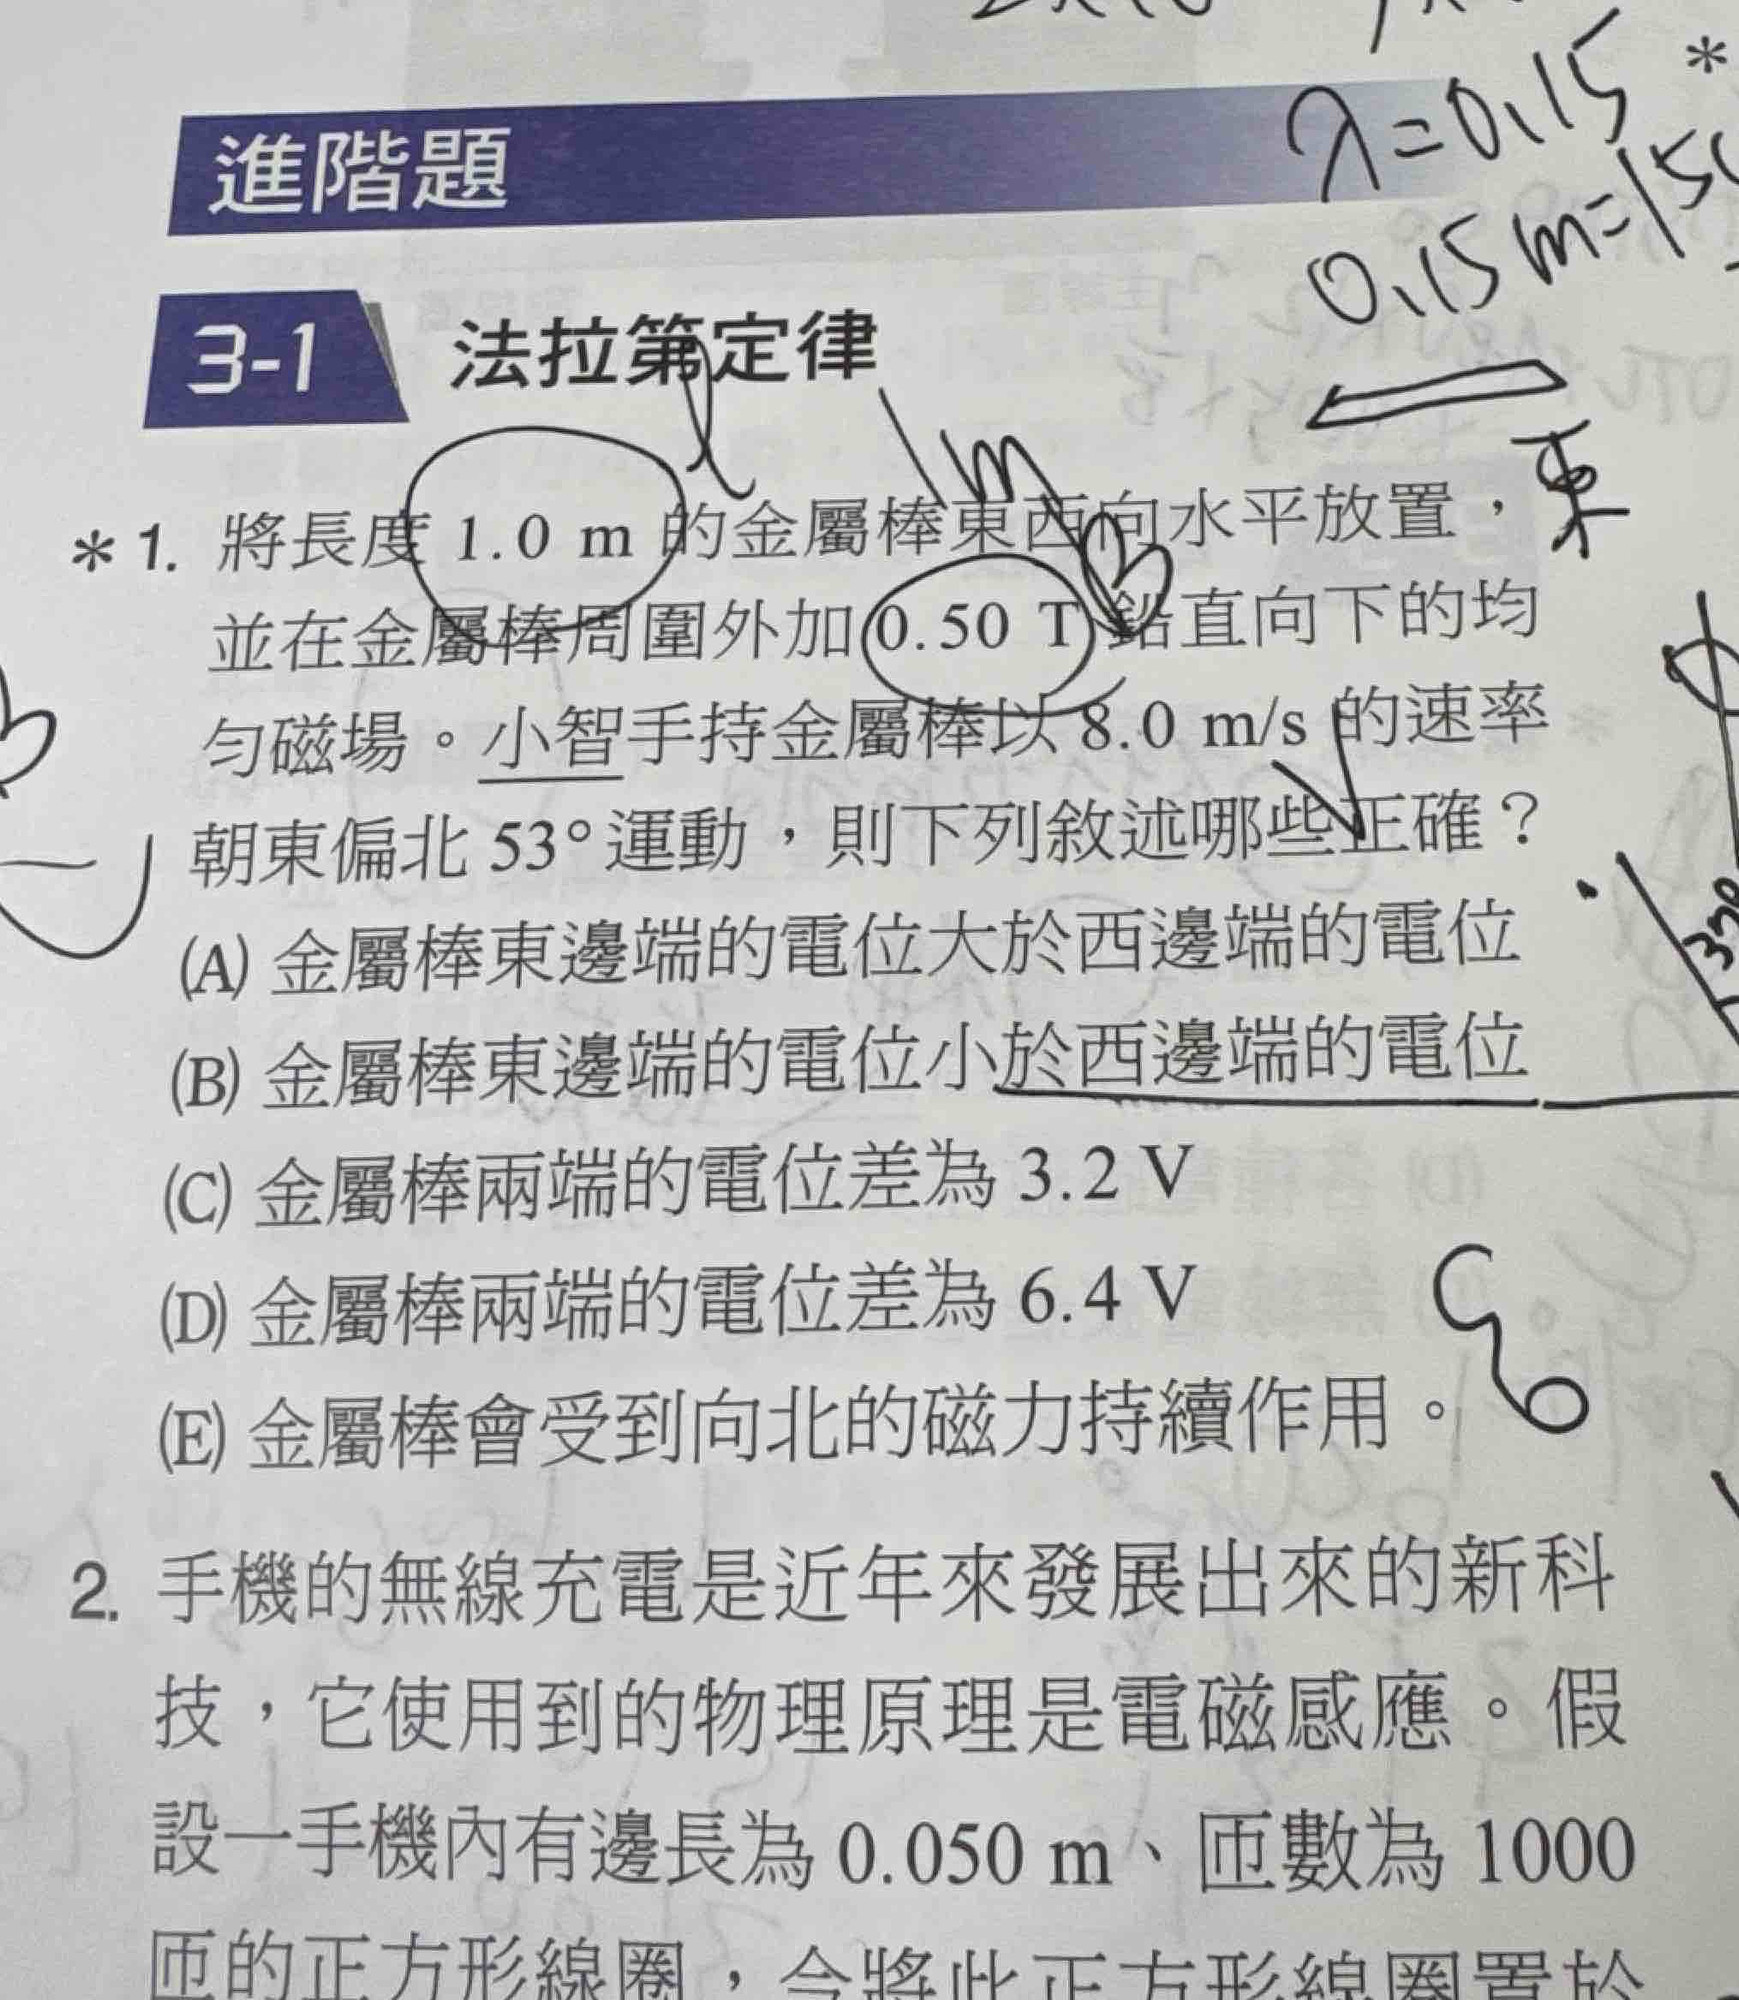 進階題
λ=0.15
0.15m=15
3-1 法拉第定律
l 1m
東
*1. 將長度 1.0 m 的金屬棒東西向水平放置，
並在金屬棒周圍外加 0.50 T 鉛直向下的均
勻磁場。小智手持金屬棒以 8.0 m/s 的速率
朝東偏北 53° 運動，則下列敘述哪些正確？
(A) 金屬棒東邊端的電位大於西邊端的電位
(B) 金屬棒東邊端的電位小於西邊端的電位
(C) 金屬棒兩端的電位差為 3.2 V
(D) 金屬棒兩端的電位差為 6.4 V
(E) 金屬棒會受到向北的磁力持續作用。
2. 手機的無線充電是近年來發展出來的新科
技，它使用到的物理原理是電磁感應。假
設一手機內有邊長為 0.050 m、匝數為 1000
匝的正方形線圈，今將此正方形線圈置於